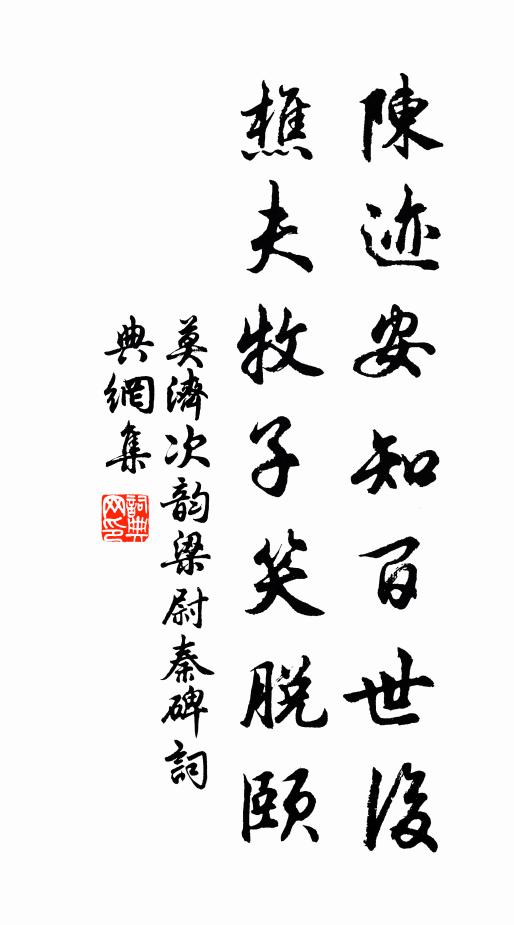 陳迹安知百世後
樵夫牧子笑脱頤
莫濟次韵梁尉秦碑詞
典網集
詞典
网印